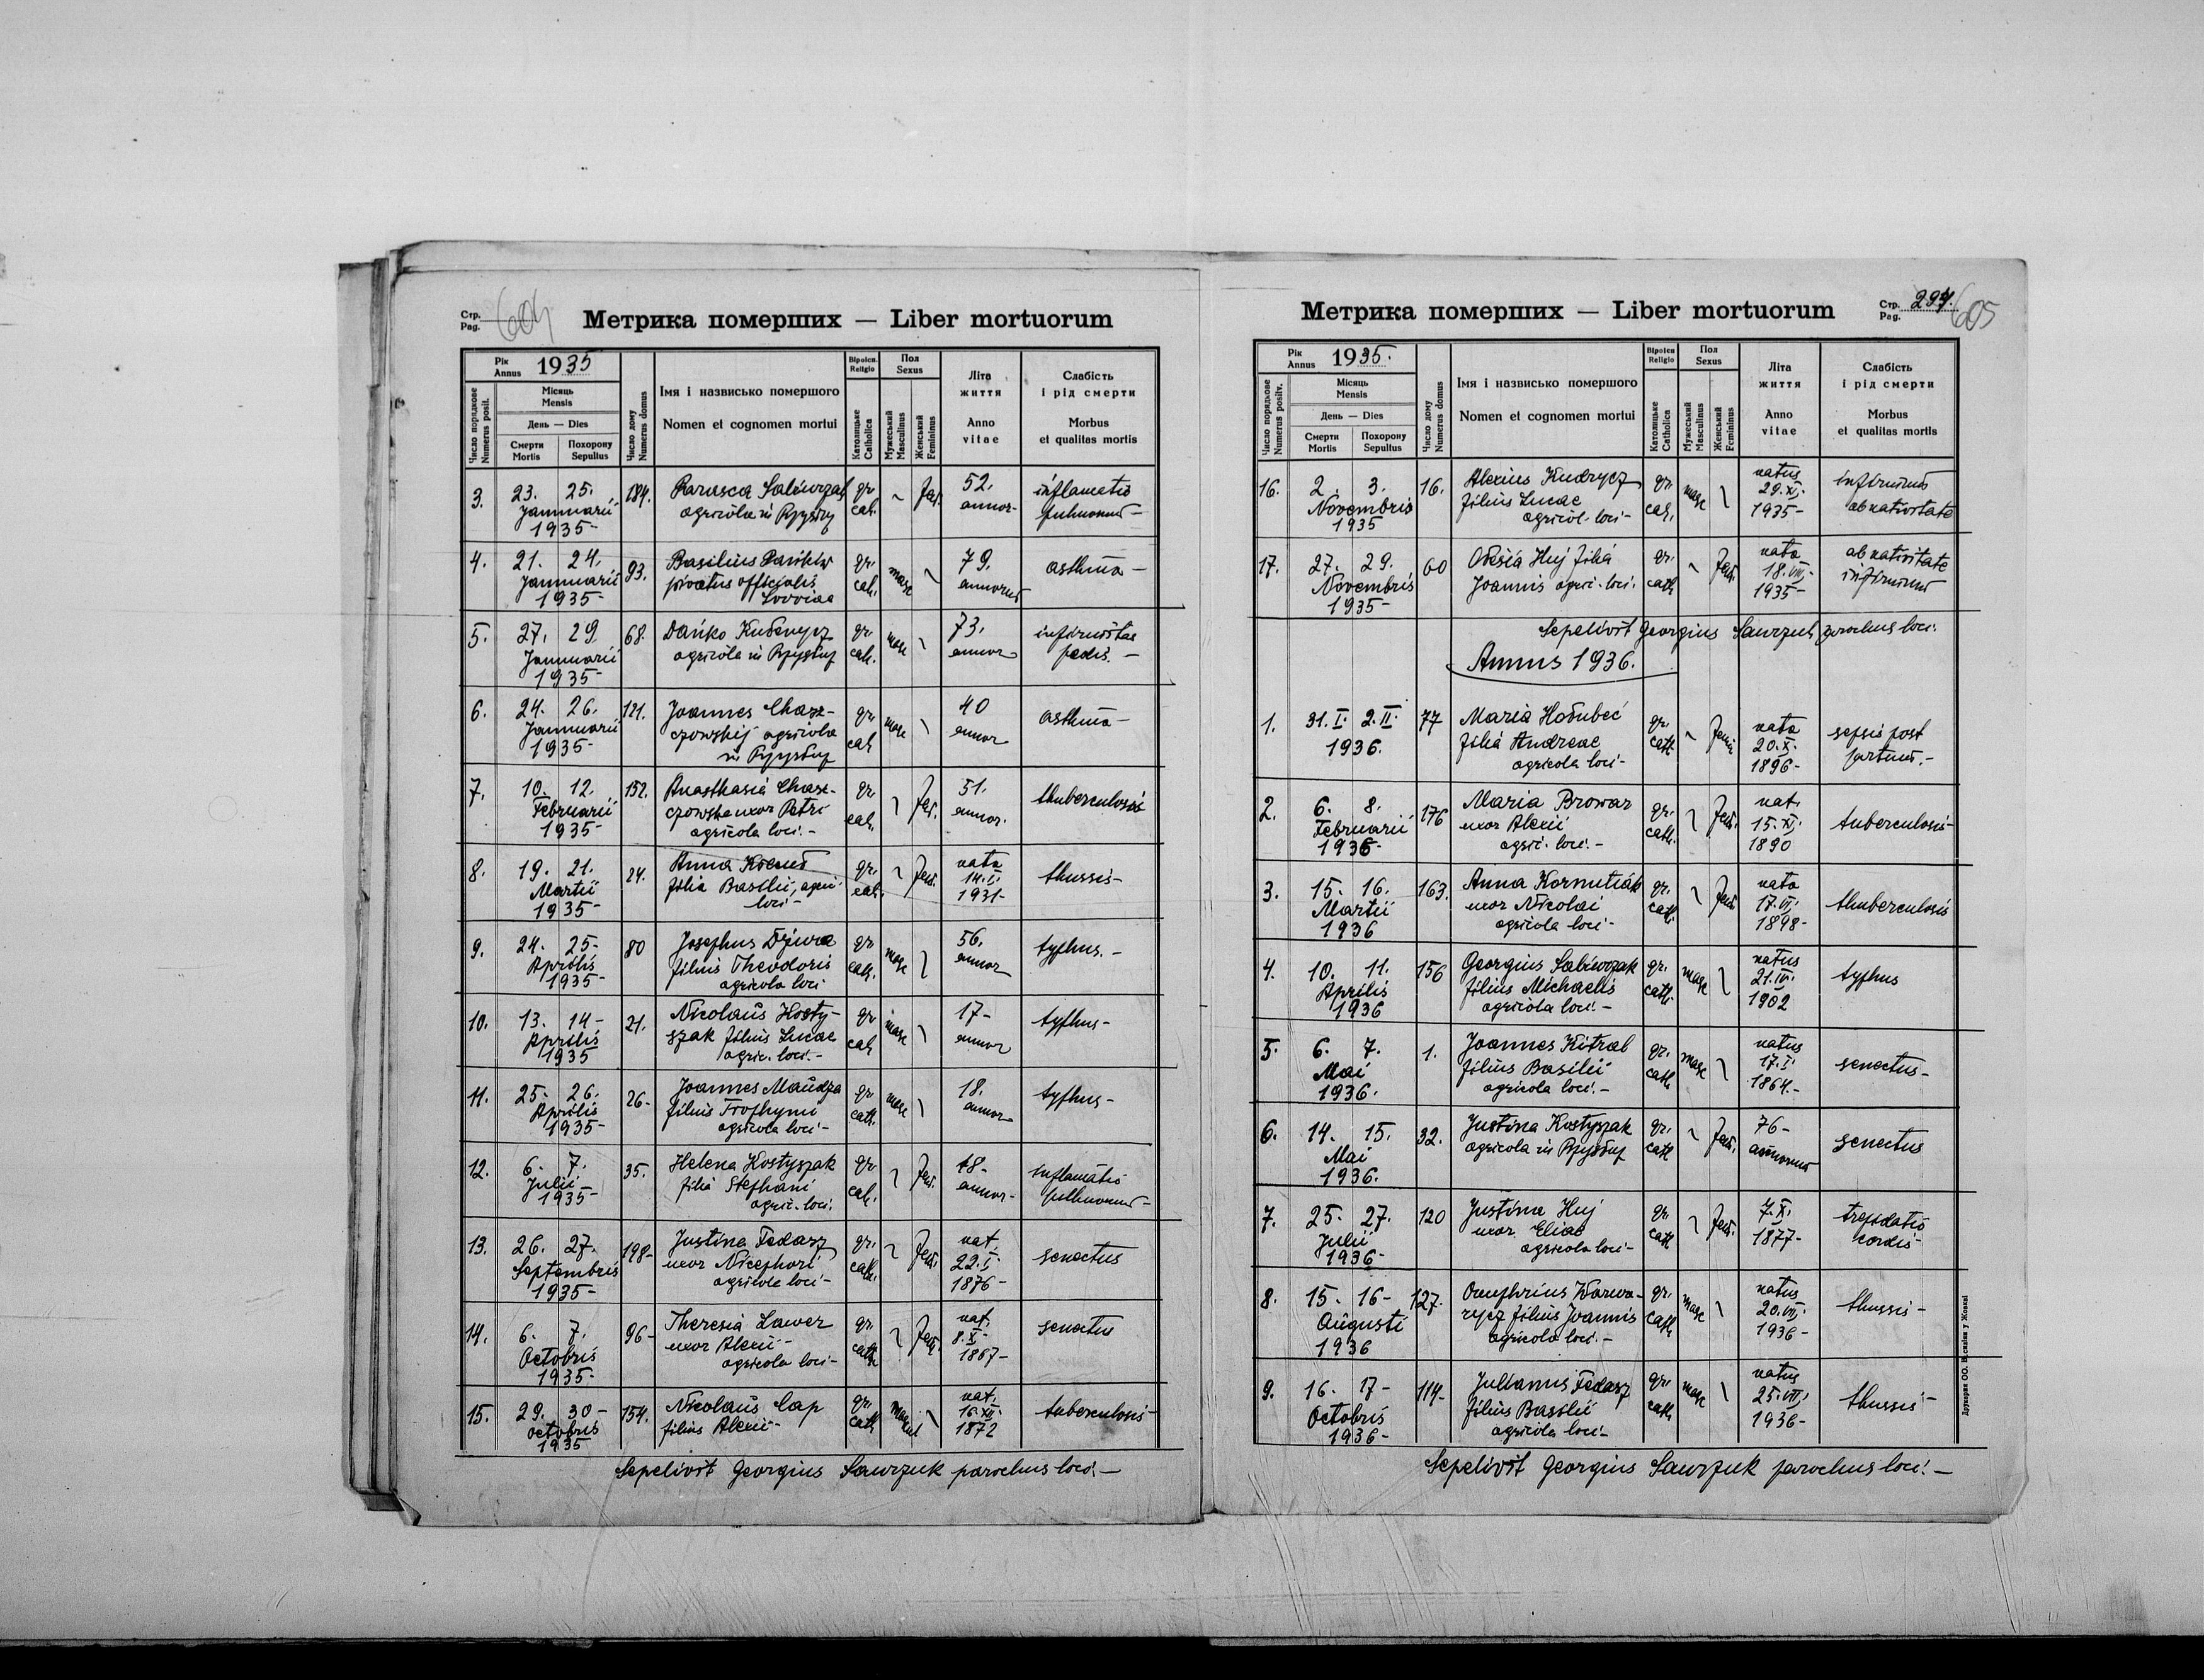 Стр.
Pag.
604
Метрика померших — Liber mortuorum
Рік
Annus 1935
Число порядкове
Numerus posit.
Місяць
Mensis
День — Dies
Смерти Похорону
Mortis Sepultus
Число дому
Numerus domus
Імя і назвисько помершого
Nomen et cognomen mortui
Віроісп.
Religio
Католицьке
Catholica
Пол
Sexus
Мужеський
Masculinus
Женський
Femininus
Літа
життя
Anno
vitae
Слабість
і рід смерти
Morbus
et qualitas mortis
3. 23. 25. 184. Parasca gr. fem. 52. inflamatio
Januarii agricola in cath. annor- pulmonum-
1935-
4. 21. 24. 93. Basilius gr. masc 79. asthma-
Januarii privatus officialis cath. annorum
1935-
5. 27. 29 68. Dańko gr. masc 73. infirmitas
Januarii agricola in cath. annor pedis.-
1935-
6. 24. 26. 121. Joannes Chasz- gr. masc 40 asthma-
Januarii czowskij agricola cath annor
1935- in
7. 10. 12. 152. Anasthasia Chasz- gr fem. 51. thuberculosis
Februarii czowska uxor Petri cath. annor.
1935- agricola loci.-
8. 19. 21. 24. Anna gr. fem. nata thussis-
Martii filia Basilii, agric. cath. 14.I.
1935- loci- 1931-
9. 24. 25- 80 Josephus gr masc 56. typhus.-
Aprilis filius Theodoris cath. annor
1935- agricola loci
10. 13. 14- 21. Nicolaus Kosty- gr masc 17- typhus-
Aprilis szak filius Lucae cath annor
1935 agric. loci.-
11. 25. 26. 26- Joannes gr masc 18. typhus-
Aprilis filius Trophymi cath. annor
1935- agricola loci-
12. 6. 7. 35. Helena Kostyszak gr fem. 48- inflamatio
Julii filia Stephani cath. annor- pulmonum-
1935- agric. loci.
13. 26. 27. 198- Justina Fedasz gr. fem. nat senectus
Septembris uxor Nicephori cath. 22.I.
1935- agricola loci- 1876-
14. 6. 7. 96- Theresia Lawer gr. fem. nat. senectus
Octobris uxor Alexii- cath 8.X.
1935- agricola loci- 1867-
15. 29. 30- 154. Nicolaus Cap gr. mascul nat. tuberculosis-
Octobris filius Alexii- cath 16.XII.
1935 1872
Sepelivit Georgius Sawczuk parochus loci.-
Метрика померших — Liber mortuorum
Стр.
Pag. 297.
605
Рік
Annus 1935.
Число порядкове
Numerus positv.
Місяць
Mensis
День — Dies
Смерти Похорону
Mortis Sepultus
Число дому
Numerus domus
Імя і назвисько помершого
Nomen et cognomen mortui
Віроісп
Religio
Католицьке
Catholica
Пол
Sexus
Мужеський
Masculinus
Женський
Femininus
Літа
життя
Anno
vitae
Слабість
і рід смерти
Morbus
et qualitas mortis
16. 2. 3. 16. Alexius Kudrycz gr. masc natus infirmus
Novembris filius Lucae cath. 29.XI.
1935 agricol. loci- 1935- ab nativitate
17. 27. 29. 60 Olesia Huj filia gr. fem. nata ab nativitate
Novembris Joannis agric. loci. cath 18.VIII. infirmus
1935- 1935-
Sepelivit Georgius Sawczuk parochus loci.
Annus 1936.
1. 31.I. 2.II. 77 Maria Hołubeć gr. femin nata sepsis post
1936. filia Andreae cath 20.X. partum.-
agricola loci- 1896-
2. 6. 8. 176 Maria Browar gr. fem. nat. tuberculosis-
Februarii uxor Alexii cath. 15.XI.
1936- agric. loci.- 1890
3. 15. 16. 163. Anna Kornutiak gr. fem. nata thuberculosis
Martii uxor Nicolai cath. 17.VI.
1936 agricola loci- 1898-
4. 10. 11. 156 Georgius gr. masc natus typhus
Aprilis filius Michaelis cath. 21.IV.
1936 agricola loci.- 1902
5. 6. 7. 1. Joannes Kitral gr. masc natus senectus-
Mai filius Basilii cath 17.I.
1936. agricola loci.- 1864.-
6. 14. 15. 32. Justina Kostyszak gr. fem. 76- senectus
Mai agricola in cath annorum
1936.
7. 25. 27. 120 Justina Huj gr. fem. 7.X. trepidatio
Julii uxor Eliae cath 1877- cordis-
1936- agricola loci-
8. 15. 16- 127. Onuphrius Warwa- gr. masc natus thussis-
Augusti rycz filius Joannis cath 20.VII.
1936 agricola loci.- 1936-
9. 16. 17- 114- Julianus Fedasz gr. masc natus thussis-
Octobris filius Basilii cath. 25.VII.
1936- agricola loci- 1936-
Sepelivit Georgius Sawczuk parochus loci.-
Друкарня ОО. Василіян у Жовкві